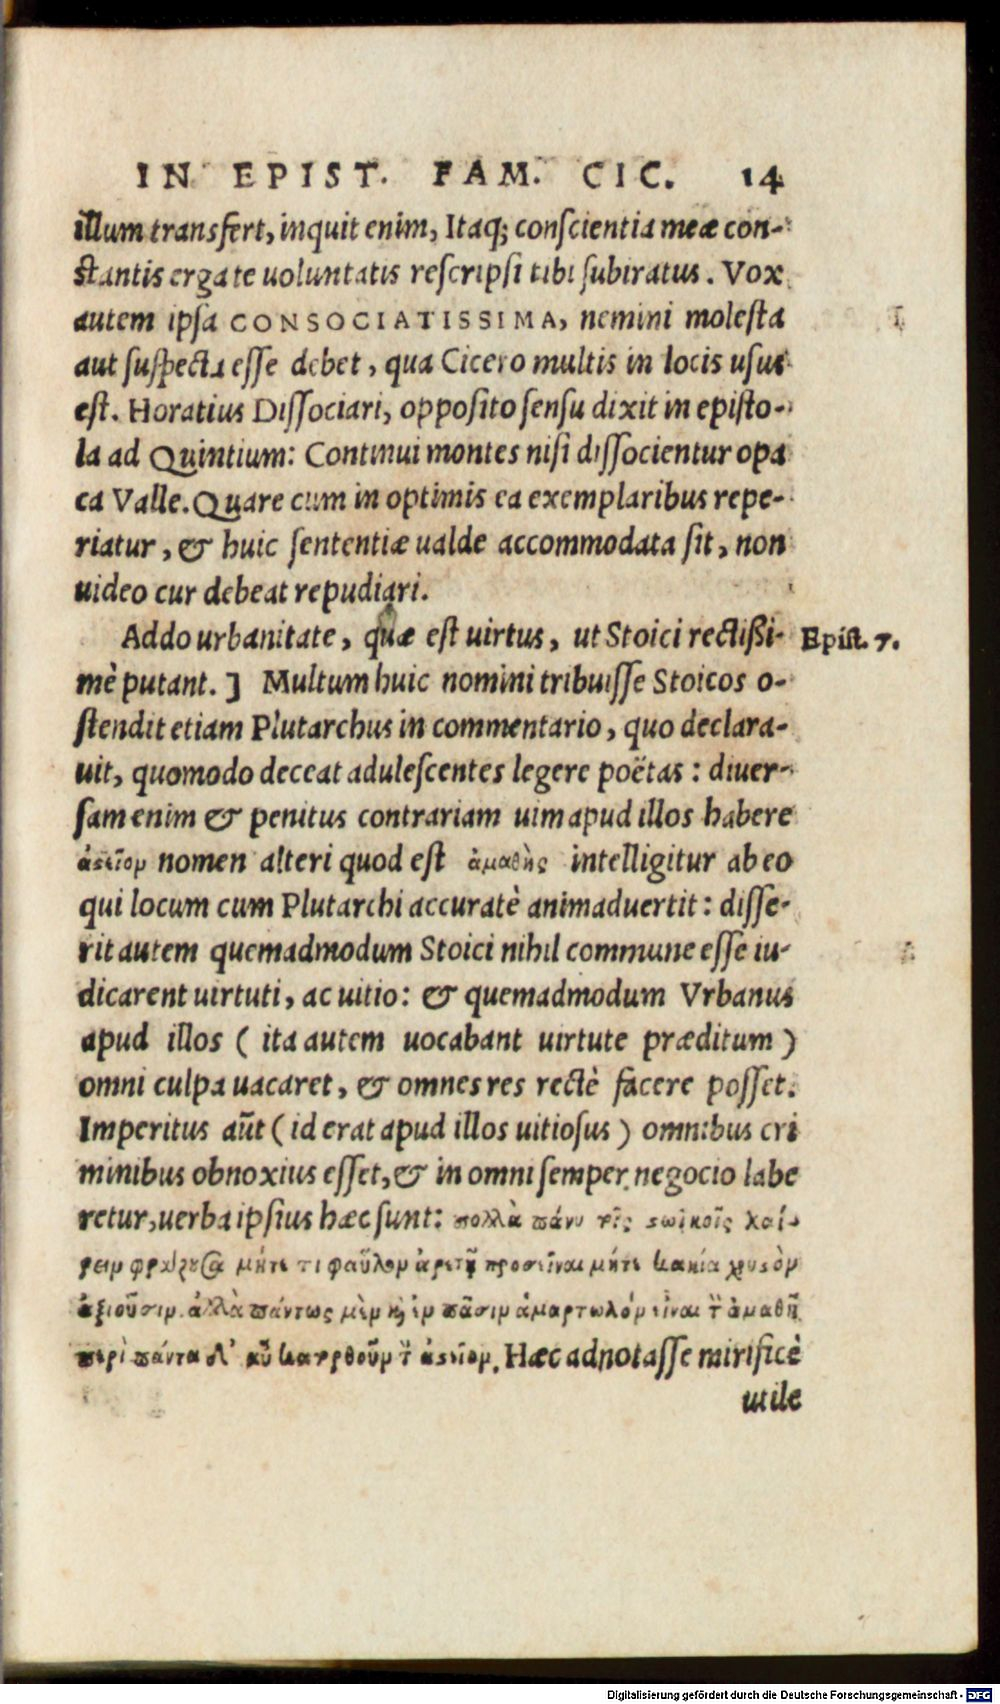 IN EPIST. FAM. CIC. 14
illum transfert, inquit enim, Itaq; conscientia meæ con-
stantis erga te uoluntatis rescripsi tibi subiratus. Vox
autem ipsa CONSOCIATISSIMA, nemini molesta
aut suspecta esse debet, qua Cicero multis in locis usus
est. Horatius Dissociari, opposito sensu dixit in episto-
la ad Quintium: Continui montes nisi dissocientur opa
ca Valle. Quare cum in optimis ea exemplaribus repe-
riatur, & huic sententiæ ualde accommodata sit, non
uideo cur debeat repudiari.
Addo urbanitate, quæ est uirtus, ut Stoici rectißi- Epist. 7.
mè putant. ] Multum huic nomini tribuisse Stoicos o-
stendit etiam Plutarchus in commentario, quo declara-
uit, quomodo deceat adulescentes legere poëtas: diuer-
sam enim & penitus contrariam uim apud illos habere
ἀστεῖον nomen alteri quod est ἀμαθὴς intelligitur ab eo
qui locum eum Plutarchi accuratè animaduertit: disse-
rit autem quemadmodum Stoici nihil commune esse iu-
dicarent uirtuti, ac uitio: & quemadmodum Vrbanus
apud illos ( ita autem uocabant uirtute præditum )
omni culpa uacaret, & omnes res rectè facere posset.
Imperitus aūt ( id erat apud illos uitiosus ) omnibus cri
minibus obnoxius esset, & in omni semper negocio labe
retur, uerba ipsius hæc sunt: πολλὰ πάνυ τοῖς στωϊκοῖς χαί-
ρειν φράζουσα μήτε τι φαῦλον ἀρετῇ προσεῖναι μήτε κακίᾳ χρηστὸν
ἀξιοῦσιν. ἀλλὰ πάντως μὲν καὶ ἐν πᾶσιν ἁμαρτωλὸν εἶναι τὸν ἀμαθῆ
περὶ πάντα δ' αὖ κατορθοῦν τὸν ἀστεῖον. Hæc adnotasse mirificè
utile
Digitalisierung gefördert durch die Deutsche Forschungsgemeinschaft - DFG